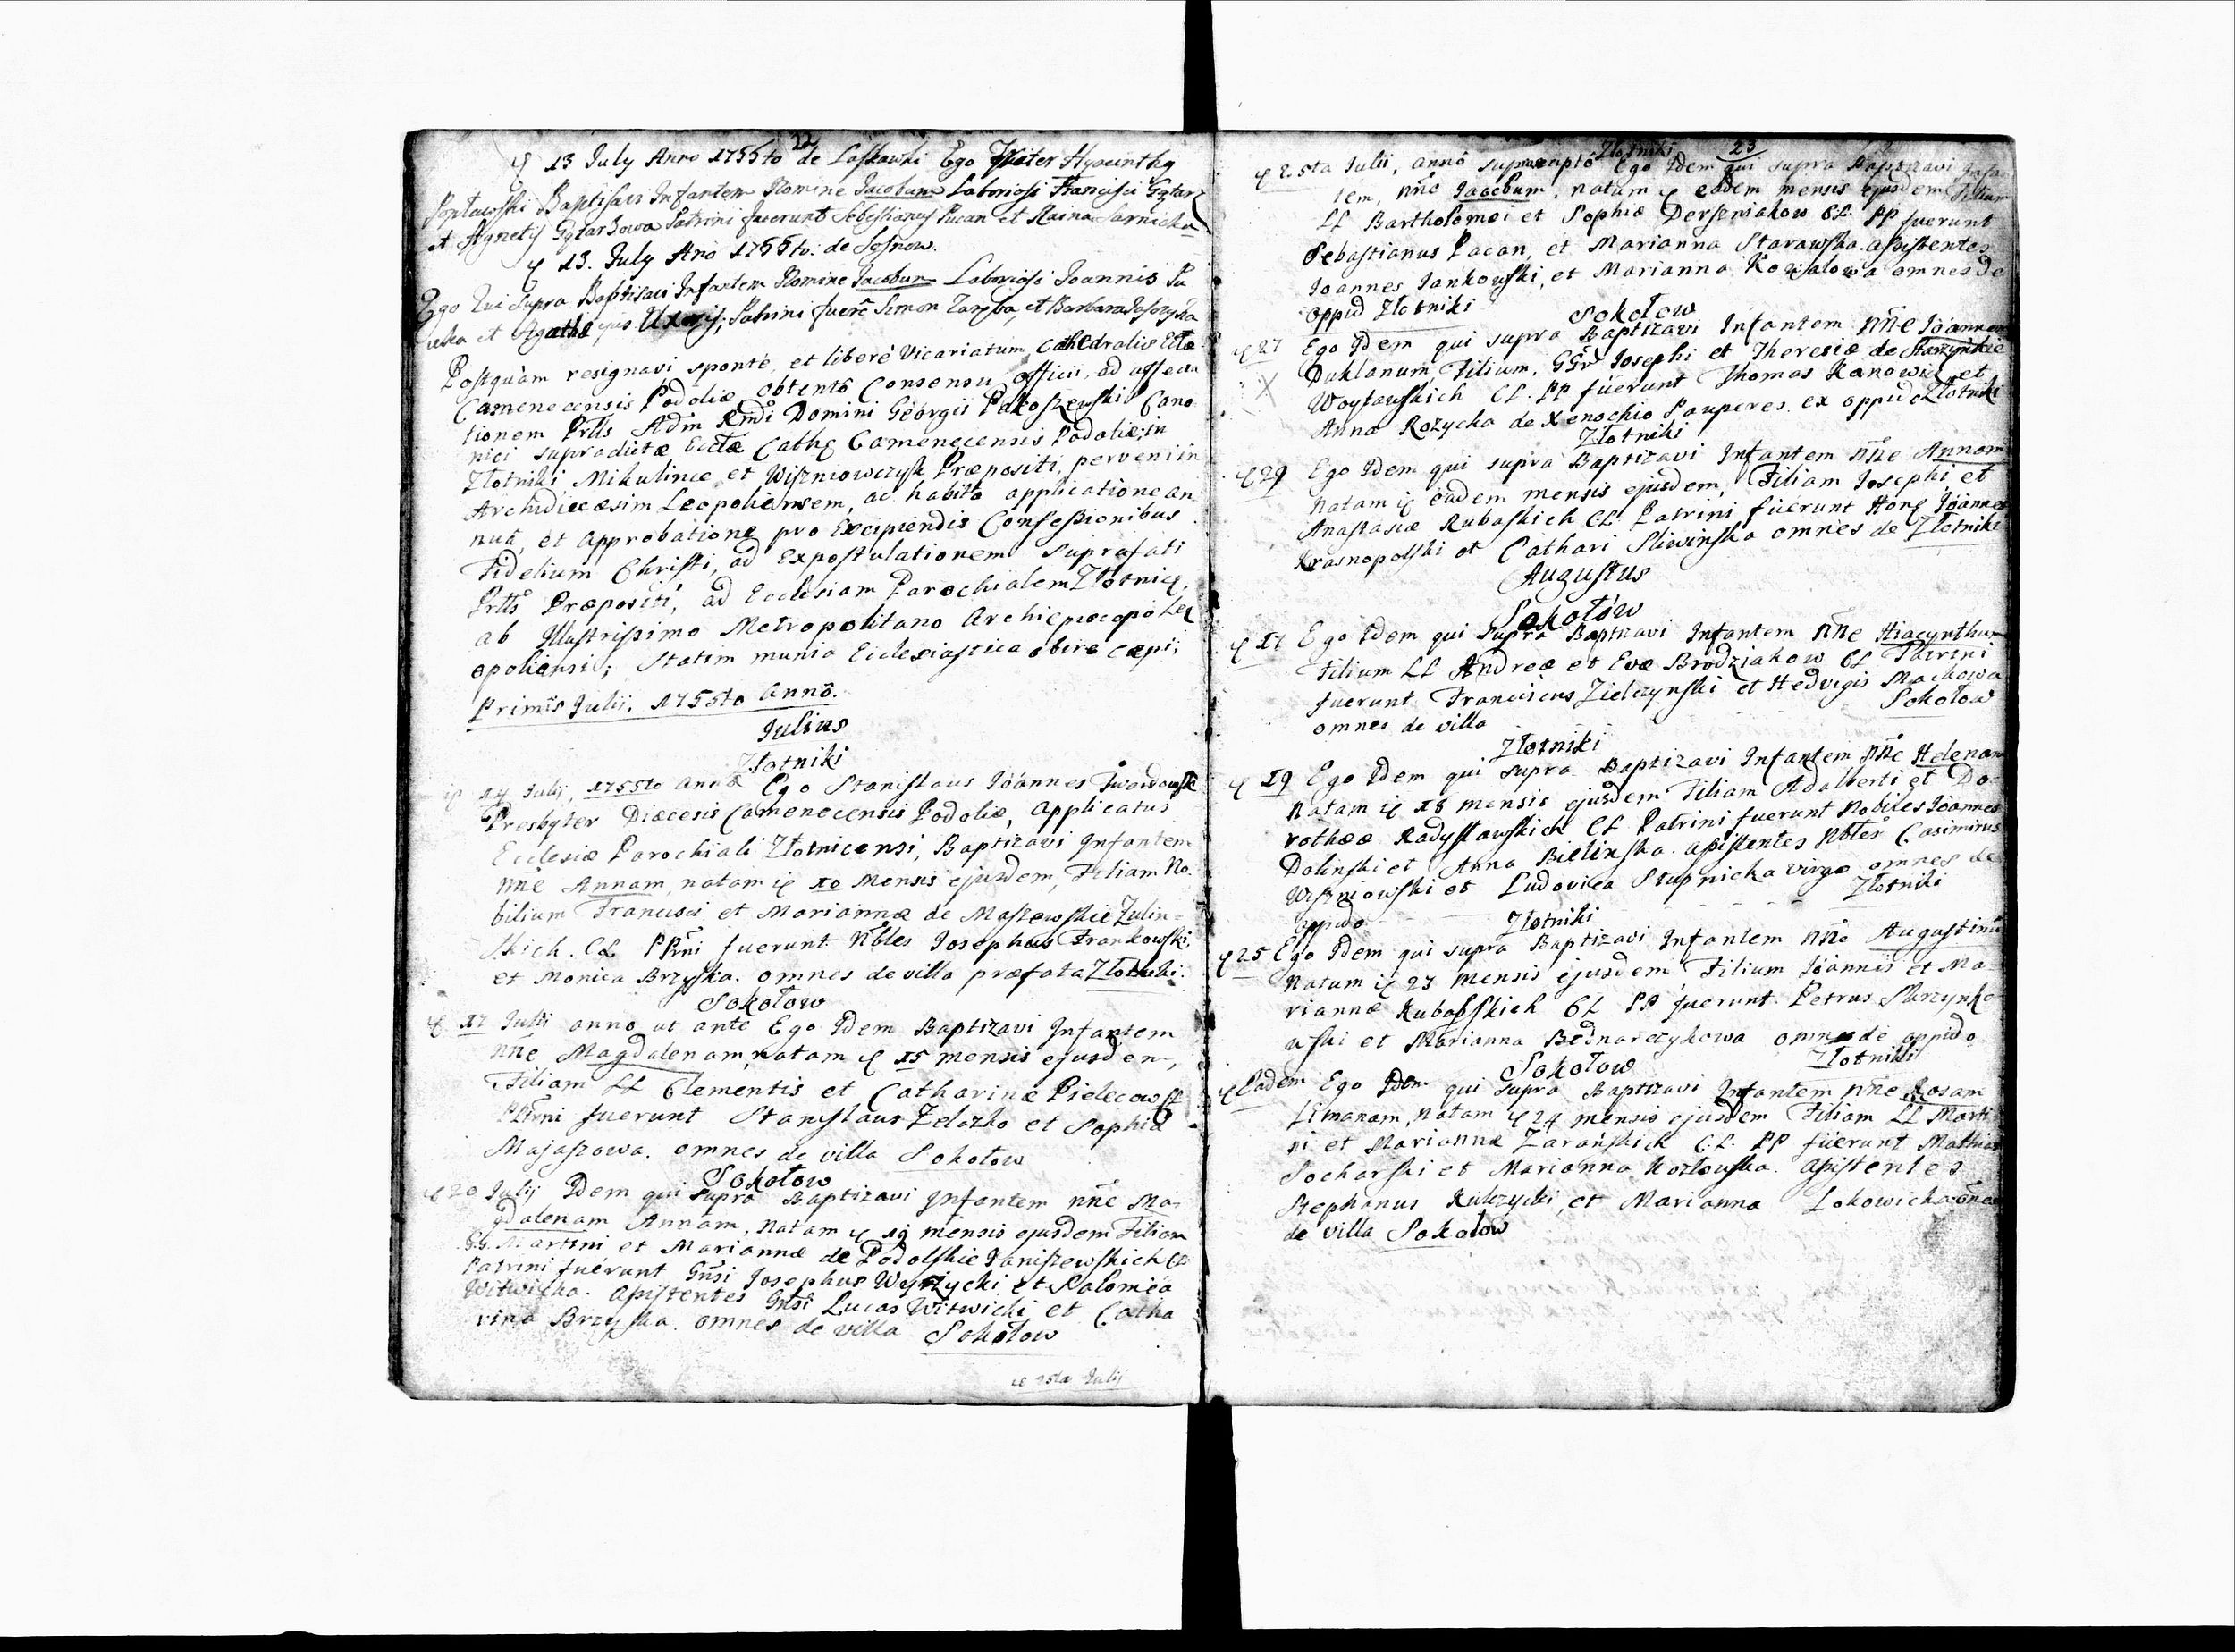 22
13 July Anno 1755to de Laskowki Ego Frater Hyacinthq
Popławski Baptisavi Infantem Nomine Jacobum Laboriosi Francisci
et Agnetis Patrini fuerunt Sebestianus Pucan et Raina Sarnicka
13. July Ano 1755to: de Sosnow.
Ego Qui Supra Baptisavi Infantem Nomine Jacobum Laboriosi Joannis
et Agatha ejus Uxoris; Patrini fuere Simon Zaręba, et Barbara
Postquàm resignavi sponte, et liberè Vicariatum Cathedralis Eccłæ
Camenecensis Podoliæ obtentô Consensu officii, ad affecta
tionem Prlls Adm Rndi Domini Géorgii Pakoszewski Cano
nici supradictæ Ecclæ Cathę Camenecensis Podoliæ, in
Złotniki Mikulince et Wiszniowczyk Præpositi, perveni in
Archidiæcæsim Leopoliensem, ac habitâ applicatione an
nuâ, et Approbatione pro Excipiendis Confessionibus
Fidelium Christi, ad Expostulationem suprafati
Prlls Præpositi, ad Ecclesiam Parochialem Złotnicę
ab Illustrissimo Metropolitano Archiepiscopô Le
opoliensi; Statim munia Ecclesiastica obire cæpi,
Primis Julii. 1755to Annô.
Julius
Złotniki
14 Julij, 1755to Anno Ego Stanislaus Jóannes Twardowski
Presbyter Diæcesis Camenecensis Podoliæ, Applicatus
Ecclesiæ Parochiali Złotnicensi, Baptizavi Infantem
nñe Annam, natam 10 Mensis ejusdem, Filiam No
bilium Francisci et Mariannæ de Maszewskie Zulin=
skich. CL PPrni fuerunt Nbles Josephus Frankowski
et Monica Brzyska. omnes de villa præfata Złotniki.
Sokołow
17 Julii anno ut ante Ego Idem Baptizavi Infantem
nñe Magdalenam, natam 15 mensis ejusdem,
Filiam LL Clementis et Catharinæ Pielecowsk
PPrni fuerunt Stanislaus Zelazko et Sophia
Majaszowa. omnes de villa Sokołow
Sokołow
20 Julij Idem qui supra Baptizavi Infantem nñe Ma
gdalenam Annam, natam 19 mensis ejusdem Filiam
GG. Martini et Mariannæ de Podolskie Janiszewskich CL
Patrini fuerunt Gnsi Josephus Wyrzycki et Salomea
Witwicka. Assistentes Gnsi Lucas Witwicki et Catha
rina Brzyska. omnes de villa Sokołow
25ta Julij
Złotniki 23
25ta Julii, annô suprascriptô Ego Idem qui supra Baptizavi Infan
tem, nñe Jacobum, natum eadem mensis ejusdem Filium
LL Bartholomæi et Sophiæ Derszniakow CL. PP fuerunt
Sebastianus Pacan, et Marianna Starawska. assistentes
Joannes Jankowski, et Marianna Kowalowa omnes de
oppid Złotniki
Sokołow
27 Ego Idem qui supra Baptizavi Infantem nñe Jóannem
Duklanum Filium, GGr Josephi et Theresiæ de Starzyńskie
Woytawskich CL. PP fuerunt Thomas Kanowicz et
Anna Rozycka de Xenochio Pauperes. ex oppidô Złotniki
Złotniki
29 Ego Idem qui supra Baptizavi Infantem nñe Annam
Natam eâdem mensis ejusdem, Filiam Josephi et
Anastasiæ Rubaskich CL. Patrini fuerunt Honę Jóannes
Krasnopolski et Cathari Sliwinska omnes de Złotniki
Augustus
Sokołów
17 Ego Idem qui supra Baptizavi Infantem nñe Hiacynthum
Filium LL Andreæ et Evæ Brodziakow CL Patrini
fuerunt Franciscus Zielczynski et Hedvigis Mackowa
omnes de villa Sokołow
Złotniki
19 Ego Idem qui supra Baptizavi Infantem nñe Helenam
Natam 18 mensis ejusdem Filiam Adalberti et Do
rotheæ Radystawskich CL Patrini fuerunt Nobiles Jóannes
Dolinski et Anna Bielinska. assistentes Nbles Casimirus
Wiszniowski et Ludovica Stupnicka virgo omnes de
oppido Złotniki
Złotniki
25 Ego Idem qui supra Baptizavi Infantem nñe Augustinũ
Natum 23 mensis ejusdem Filium Jóannis et Ma=
riannæ Kubasskich CL PP fuerunt Petrus Skrzynko
wski et Marianna Bednarczykowa omnes de oppido
Złotniki
Sokołow
Eadem Ego Idem qui supra Baptizavi Infantem nñe Rosam
Limanam, natam 24 mensis ejusdem Filiam LL Marti
ni et Mariannæ Zaranskich CL. PP fuerunt Mathias
Socharski et Marianna Kozłowska. Assistentes
Stephanus Kulczycki, et Marianna Lokowicka oñes
de villa Sokołow